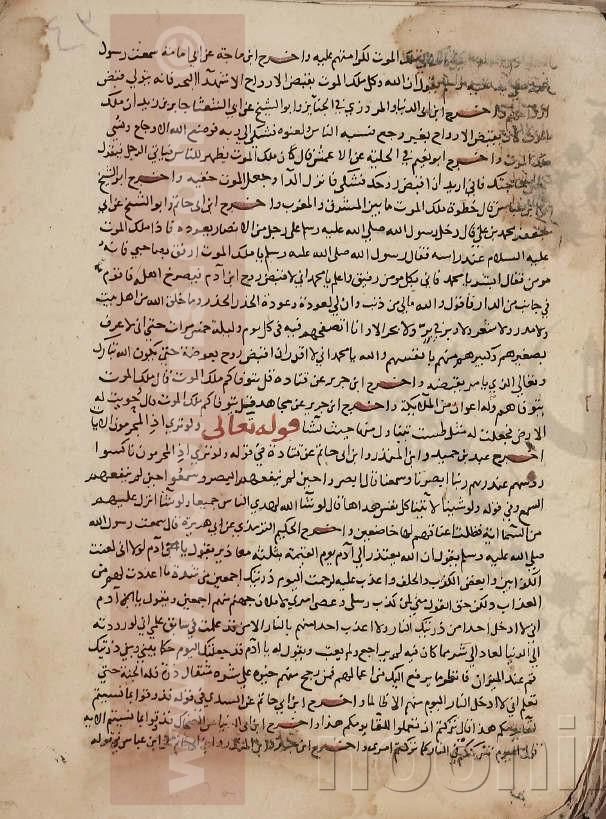 ملك الموت لكرامتهم عليه واخرج ابن ماجة عن ابى امامة سمعت رسول
يقول ان الله وكل ملك الموت بقبض الارواح الا شهدا البحر فانه يتولى قبض
واخرج ابن ابى الدنيا والمروزي في الجنايز وابو الشيخ عن ابي الشعثا جابر بن زيد ان ملك
الموت كان يقبض الارواح بغير وجع فسبه الناس ولعنوه فشكى الى ربه فوضع الله الاوجاع ونسي
ملك الموت واخرج ابو نعيم في الحلية عن الاعمش قال كان ملك الموت يظهر للناس فياتي الرجل فيقول
حاجتك فاني اريد ان اقبض روحك فشكى فانزل الدا وجعل الموت خفية واخرج ابو الشيخ
عن ابن عباس قال خطوة ملك الموت ما بين المشرق والمغرب واخرج ابن ابى حاتم وابو الشيخ عن ابي
جعفر محمد بن علي قال دخل رسول الله صلى الله عليه وسلم على رجل من الانصار يعوده فاذا ملك الموت
عليه السلام عند راسه فقال رسول الله صلى الله عليه وسلم يا ملك الموت ارفق بصاحبي فانه
مومن فقال ابشر يا محمد فاني بكل مومن رفيق واعلم يا محمد اني لاقبض روح ابن ادم فيصرخ اهله فاقوم
في جانب من الدار فاقول والله مالي من ذنب وان لي لعودة وعودة الحذر الحذر وما خلق الله من اهل بيت
ولا مدر ولا شعر ولا وبر في بر ولا بحر الا وانا اتصفحهم فيه في كل يوم وليلة خمس مرات حتى اني لاعرف
بصغيرهم وكبيرهم منهم بانفسهم والله يا محمد اني لا اقدر ان اقبض روح بعوضة حتى يكون الله تبارك
وتعالى الذي يامر بقبضه واخرج ابن جرير عن قتادة قل يتوفاكم ملك الموت قال ملك الموت
يتوفاهم وله اعوان من الملايكة واخرج ابن جرير عن مجاهد قل يتوفاكم ملك الموت قال حويت له
الارض فجعلت له مثل طست يتناول منها حيث يشا قوله تعالى ولو ترى اذ المجرمون الايا
اخرج عبد بن حميد وابن المنذر وابن ابى حاتم عن قتادة في قوله ولو ترى اذ المجرمون ناكسوا
روسهم عند ربهم ربنا ابصرنا وسمعنا قال ابصروا حين لم ينفعهم البصر وسمعوا حين لم ينفعهم
السمع وفي قوله ولو شينا لاتينا كل نفس هداها قال لو شا الله لهدى الناس جميعا ولو شا انزل عليهم
من السما اية فظلت اعناقهم لها خاضعين واخرج الحكيم الترمذي عن ابى هريرة قال سمعت رسول الله
صلى الله عليه وسلم يقول ان الله يعتذر الى ادم يوم القيمة بثلاثة معاذير يقول يا ادم لولا انى لعنت
الكذابين وابغض الكذب والخلف واعذب عليه لرحمت اليوم ذريتك اجمعين من شدة ما اعددت لهم من
العذاب ولكن حق القول مني لمن كذب رسلي وعصى امري لاملان جهنم منهم اجمعين ويقول يا ادم
انى لا ادخل احدا من ذريتك النار ولا اعذب احدا منهم بالنار الا من قد علمت في سابق علمي انى لو رددته
الى الدنيا لعاد الى شر مما كان فيه لم يراجع ولم يعتب ويقول له يا ادم قد جعلتك اليوم حكما بيني وبين ذريتك
قم عند الميزان فانظر ما يرفع اليك من اعمالهم فمن رجح منهم خيره على شره مثقال ذرة فله الجنة حتى
تعلم انى لا ادخل النار اليوم منهم الا ظالما واخرج ابن ابي حاتم عن السدي في قوله فذوقوا بما نسيتم
لقا يومكم هذا قال تركتم ان تعملوا للقا يومكم هذا واخرج ابن ابى عن الضحاك فذوقوا بما نسيتم الايه
قال اليوم نترككم في النار كما تركتم امري واخرج ابن جرير وابن المنذر وابن ابى حاتم عن ابن عباس في قوله